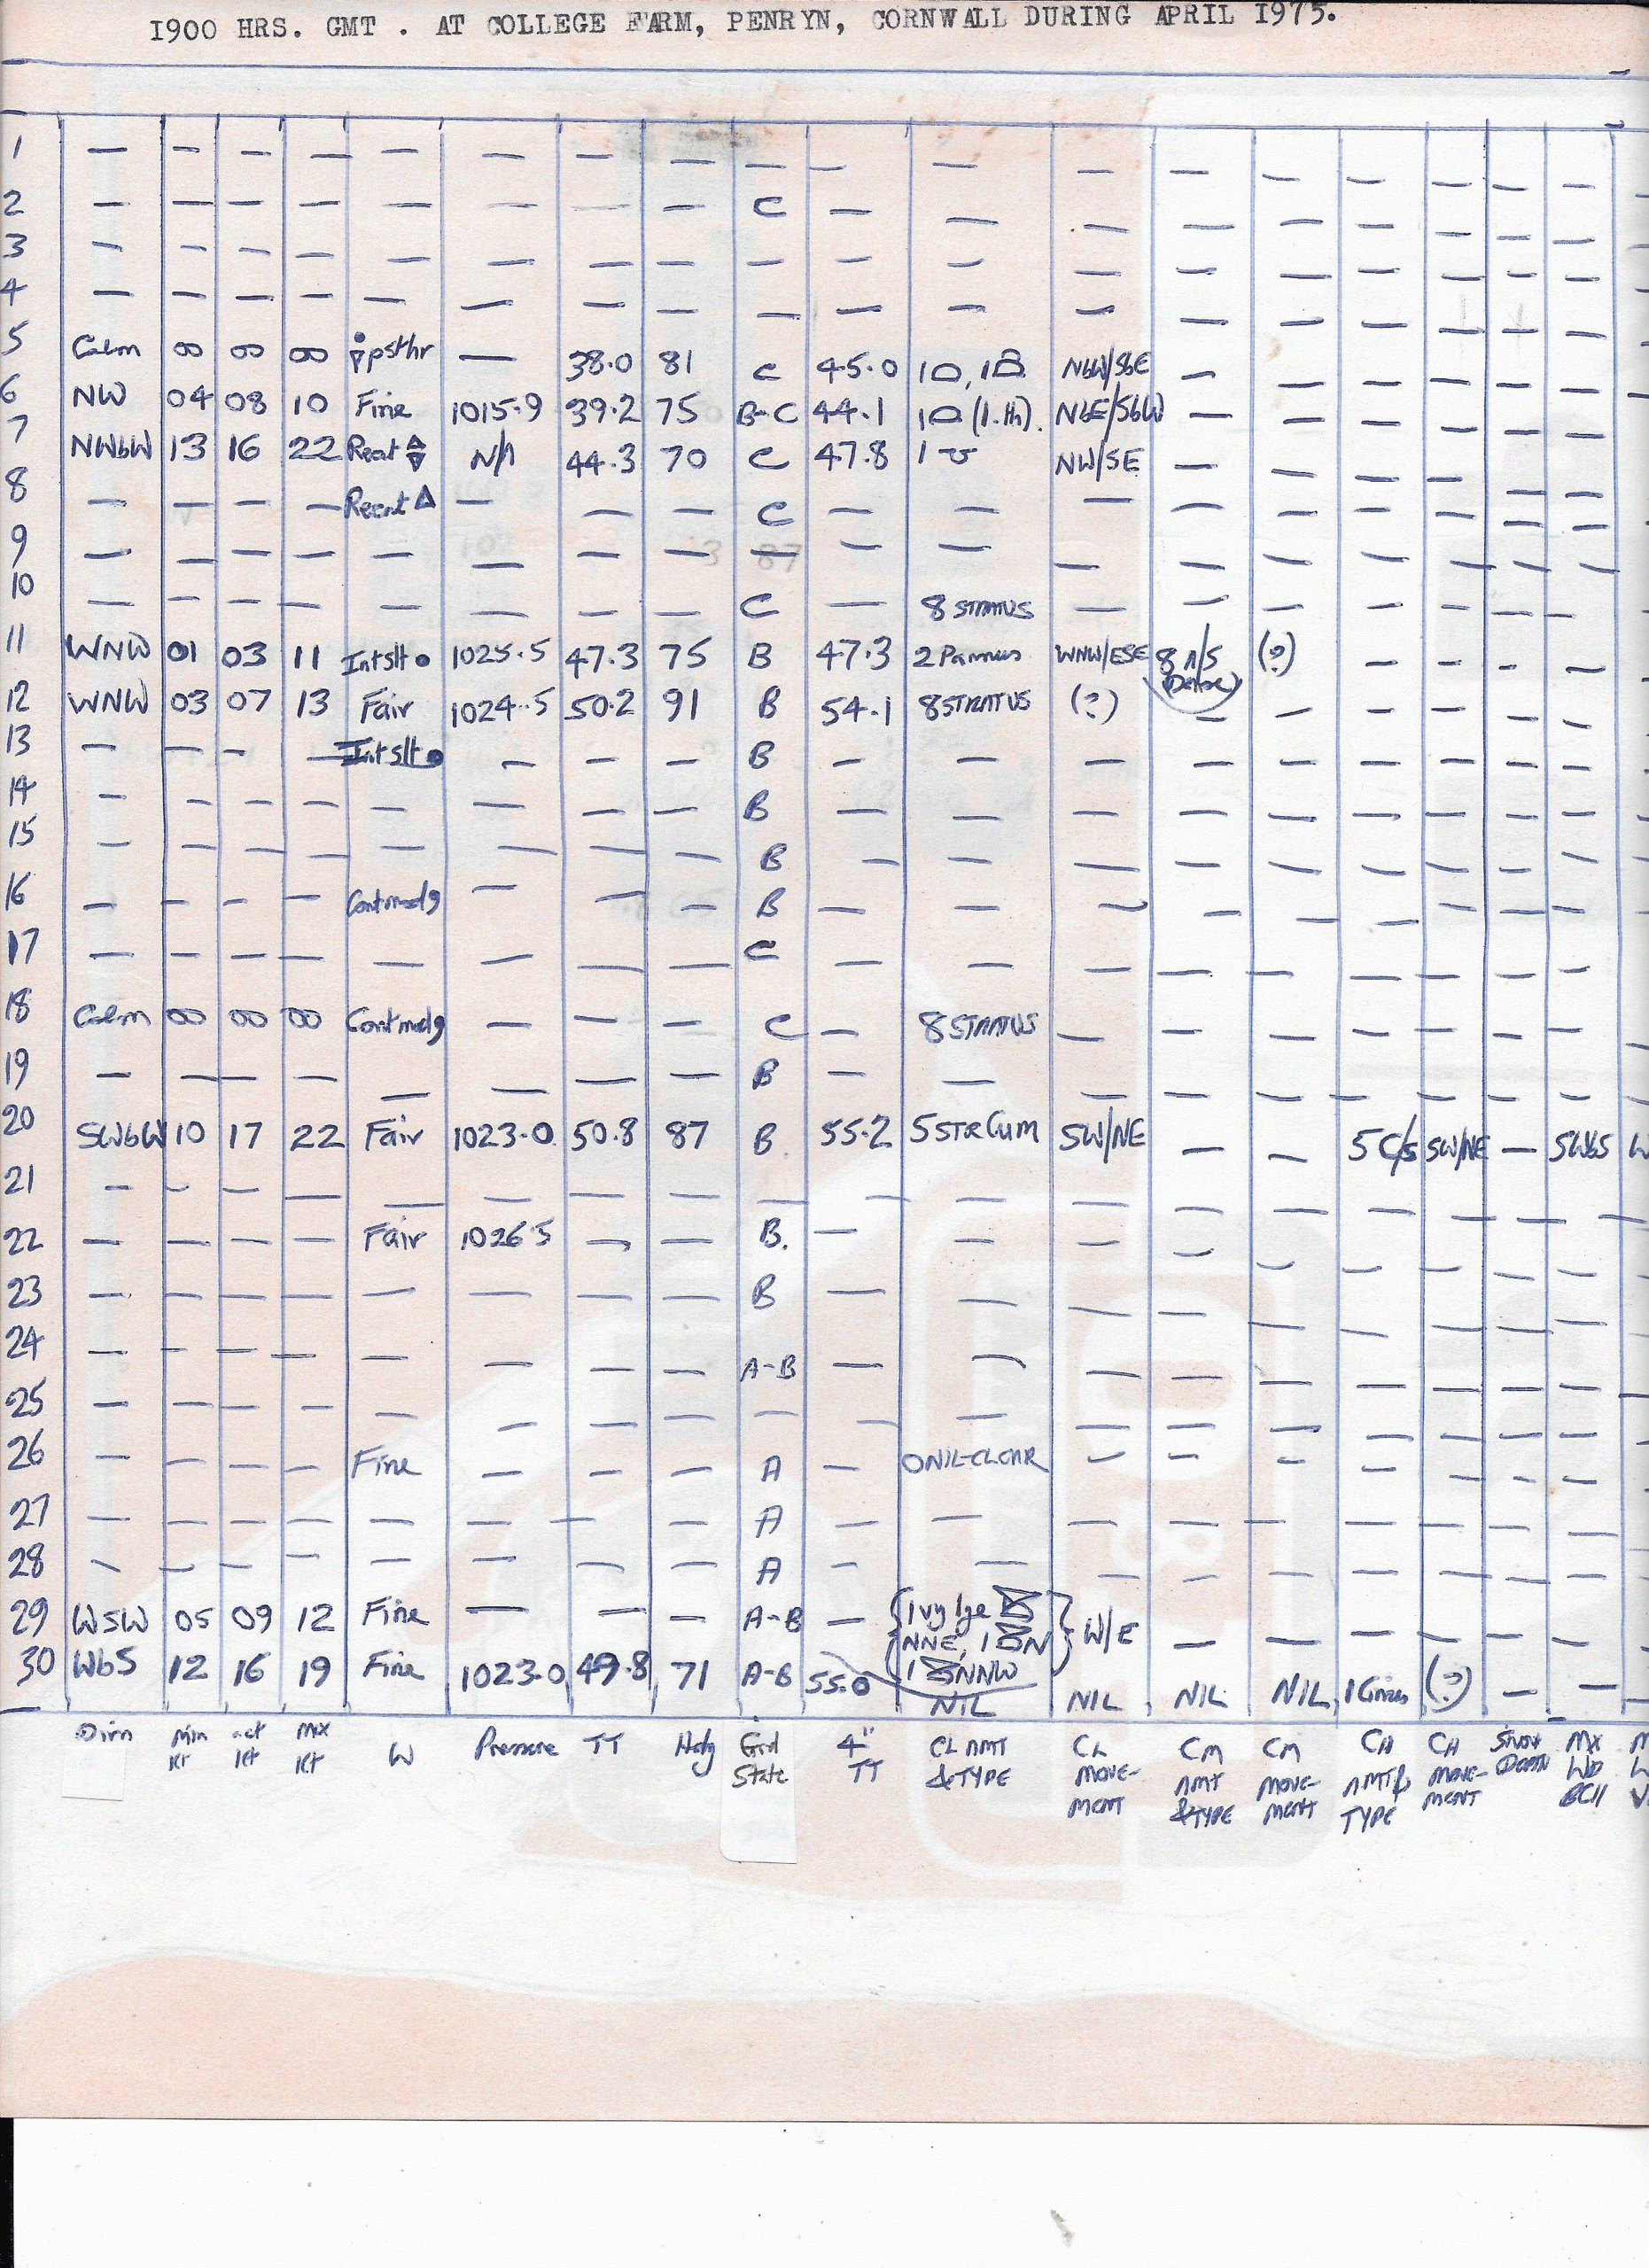 1900 HRS. GMT . AT COLLEGE FARM, PENRYN, CORNWALL DURING APRIL 1975.
1 — — — — — — — — — — — — — — — — — —
2 — — — — — — — — C — — — — — — — — —
3 — — — — — — — — — — — — — — — — — —
4 — — — — — — — — — — — — — — — — — —
5 Calm 00 00 00 psthr — 38.0 81 C 45.0 1, 1 NbW/SbE — — — — — —
6 NW 04 08 10 Fine 1015.9 39.2 75 B-C 44.1 1 (1.th). NbE/SbW — — — — — —
7 NWbW 13 16 22 Recnt N/A 44.3 70 C 47.8 1 NW/SE — — — — — —
8 — — — — Recnt △ — — — C — — — — — — — — —
9 — — — — — — — — — — — — — — — — — —
10 — — — — — — — — C — 8 STRATUS — — — — — — —
11 WNW 01 03 11 Int slt ● 1025.5 47.3 75 B 47.3 2 Pannus WNW/ESE 8 A/S (Dense) (?) — — — —
12 WNW 03 07 13 Fair 1024.5 50.2 91 B 54.1 8 STRATUS (?) — — — — — —
13 — — — — Int slt ● — — — B — — — — — — — — —
14 — — — — — — — — B — — — — — — — — —
15 — — — — — — — — B — — — — — — — — —
16 — — — — Cont mod 9 — — — B — — — — — — — — —
17 — — — — — — — — C — — — — — — — — —
18 Calm 00 00 00 Cont mod 9 — — — C — 8 STRATUS — — — — — — —
19 — — — — — — — — B — — — — — — — — —
20 SWbW 10 17 22 Fair 1023.0 50.8 87 B 55.2 5 STRCUM SW/NE — — 5 C/S SW/NE — SWbS W
21 — — — — — — — — — — — — — — — — — —
22 — — — — Fair 1026.5 — — B. — — — — — — — — —
23 — — — — — — — — B — — — — — — — — —
24 — — — — — — — — A-B — — — — — — — — —
25 — — — — — — — — — — — — — — — — — —
26 — — — — Fine — — — A — 0 NIL-CLEAR — — — — — — —
27 — — — — — — — — A — — — — — — — — —
28 — — — — — — — — A — — — — — — — — —
29 WSW 05 09 12 Fine — — — A-B — {1 vy lge NNE, 1 N 1 NNW} W/E — — — — — —
30 WbS 12 16 19 Fine 1023.0 49.8 71 A-B 55.0 NIL NIL NIL NIL 1 Cirrus (?) — —
Dirn Min Kt act Kt Mx Kt W Pressure TT Hdy Grd State 4" TT CL AMT & TYPE CL MOVE-MENT CM AMT & TYPE CM MOVE-MENT CH AMT & TYPE CH MOVE-MENT Snow Depth Mx Wd